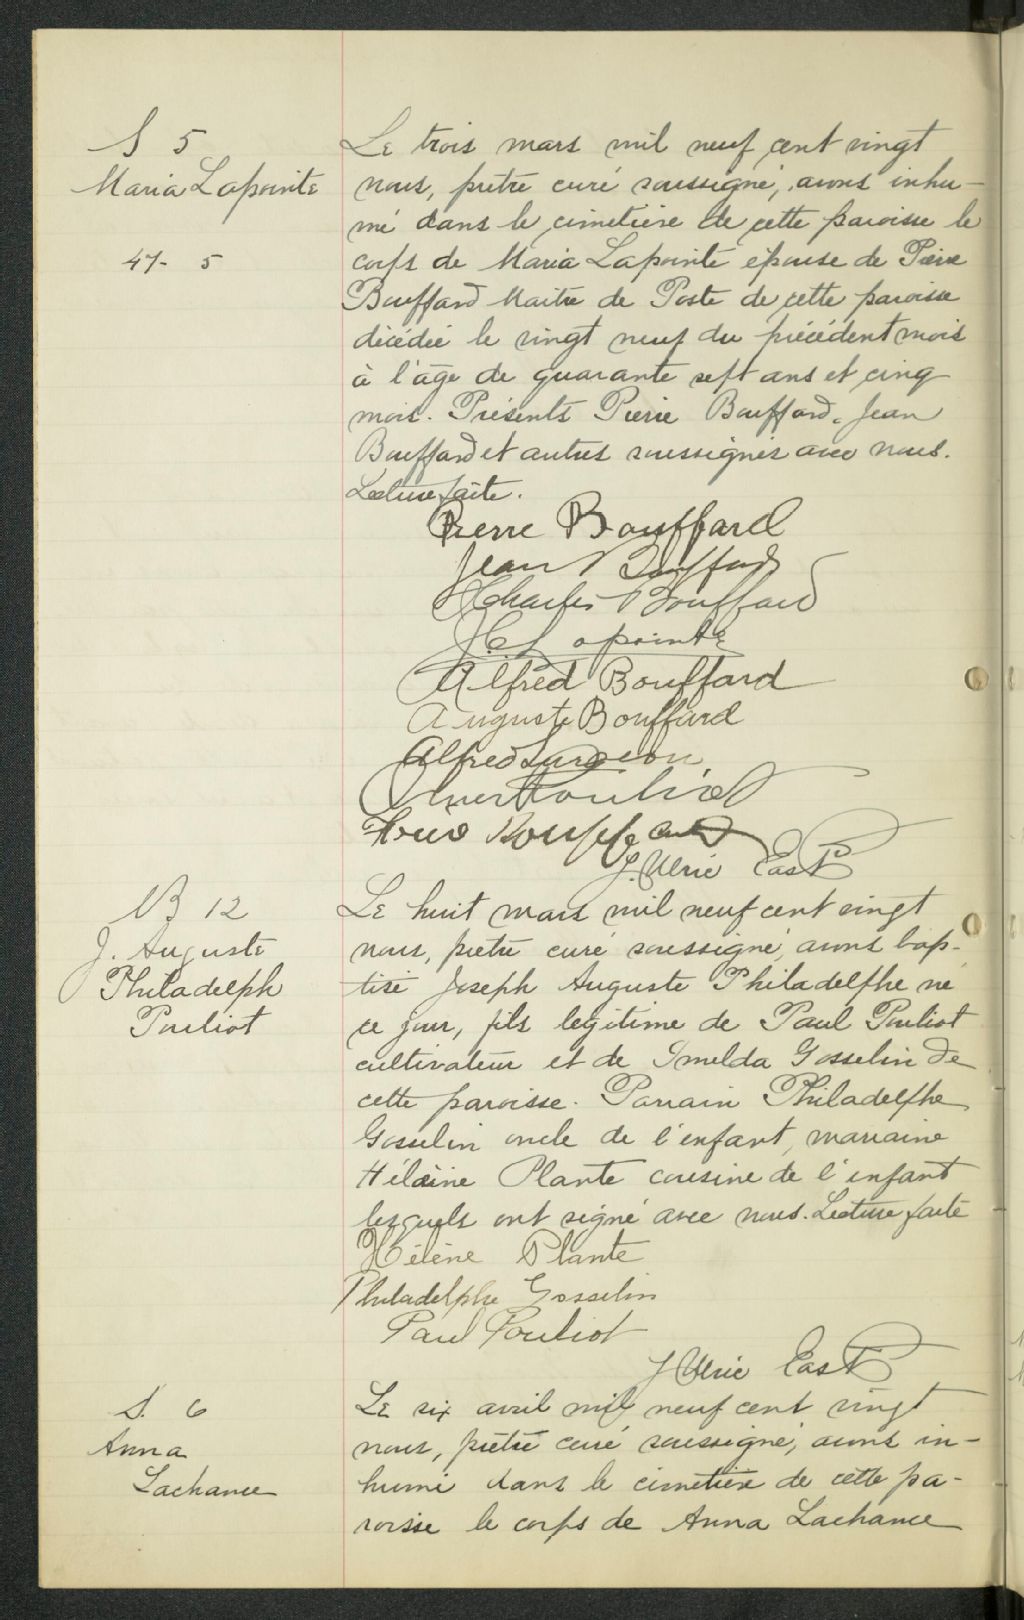 S 5
Maria Lapointe
47- 5
Le trois mars mil neuf cent vingt
nous, prêtre curé soussigné, avons inhu-
mé dans le cimetière de cette paroisse le
corps de Maria Lapointe épouse de Pierre
Bouffard Maitre de Poste de cette paroisse
décédée le vingt neuf du précédent mois
à l'âge de quarante sept ans et cinq
mois. Présents Pierre Bouffard, Jean
Bouffard et autres soussignés avec nous.
Lecture faite.
Pierre Bouffard
Jean Bouffard
Charles Bouffard
Lapointe
Alfred Bouffard
Auguste Bouffard
Alfred
Pouliot
Bouffard
J. Ulric East Ptre
B 12
J. Auguste
Philadelph
Pouliot
Le huit mars mil neuf cent vingt
nous, prêtre curé soussigné, avons bap-
tisé Joseph Auguste Philadelphe né
ce jour, fils légitime de Paul Pouliot
cultivateur et de Imelda Gosselin de
cette paroisse. Parrain Philadelphe
Gosselin oncle de l'enfant, marraine
Hélène Plante cousine de l'enfant
lesquels ont signé avec nous. Lecture faite
Hélène Plante
Philadelphe Gosselin
Paul Pouliot
J Ulric East Ptre
S. 6
Anna
Lachance
Le six avril mil neuf cent vingt
nous, prêtre curé soussigné, avons in-
humé dans le cimetière de cette pa-
roisse le corps de Anna Lachance